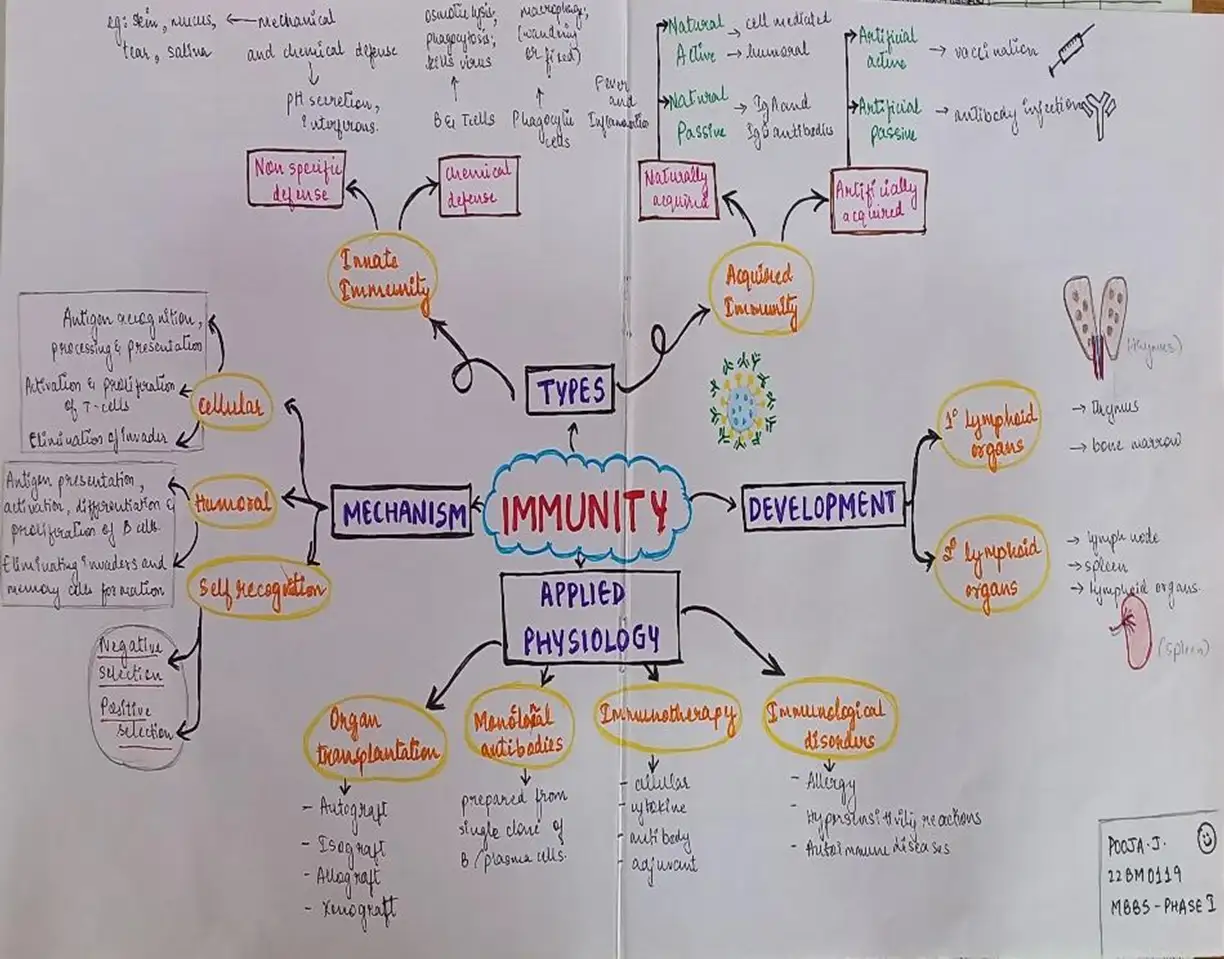 eg: skin, mucus,
tear, saliva
Mechanical
and chemical defense
PH secretion,
Interferons.
osmotic lysis,
phagocytosis;
kills virus
B & T cells
macrophage;
(wandring
or fixed)
Phagocytic
cells
Fever
and
Inflammation
Natural
Active
cell mediated
humoral
Natural
Passive
IgA and
IgG antibodies
Artificial
active
vaccination
Artificial
passive
antibody infection
Non specific
defense
chemical
defense
Naturally
acquired
Artificially
acquired
Innate
Immunity
Acquired
Immunity
TYPES
Antigen recognition,
processing & presentation
Activation & proliferation
of T-cells
Elimination of Invader
cellular
Antigen presentation,
activation, differentiation &
proliferation of B cells.
Eliminating invaders and
memory cells formation
Humoral
Self recognition
Negative
selection
Positive
selection
MECHANISM
IMMUNITY
DEVELOPMENT
1° lymphoid
organs
Thymus
bone marrow
(thymus)
2° lymphoid
organs
lymph node
spleen
lymphoid organs.
(spleen)
APPLIED
PHYSIOLOGY
Organ
transplantation
- Autograft
- Isograft
- Allograft
- Xenograft
antibodies
prepared from
single clone of
B/plasma cells.
Immunotherapy
- cellular
- cytokine
- antibody
- adjuvant
Immunological
disorders
- Allergy
- Hypersensitivity reactions
- Autoimmune diseases
POOJA.J.
22BM0119
MBBS-PHASE I